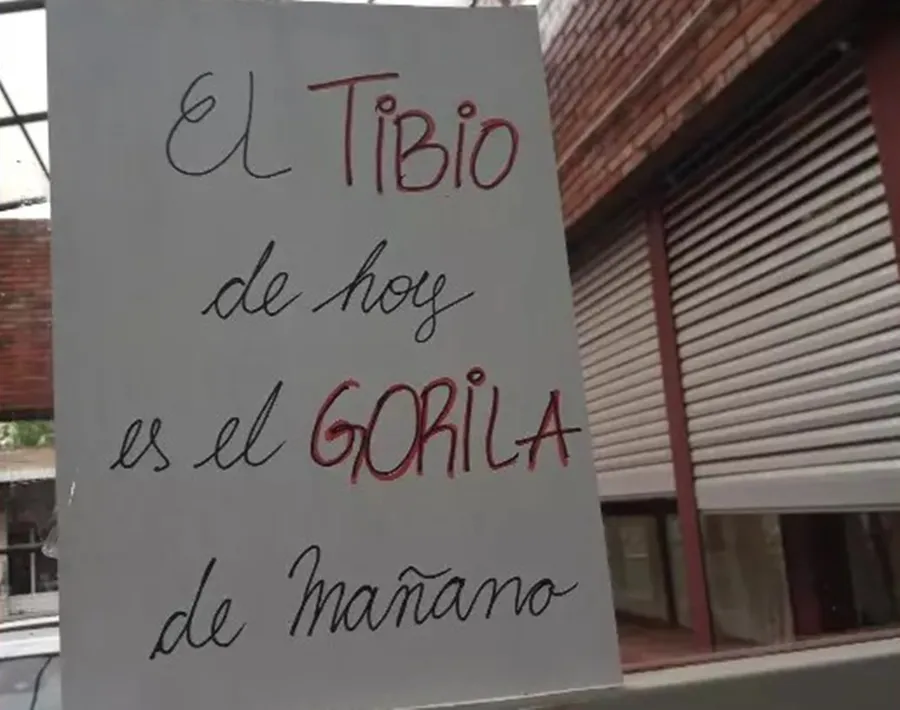 El TIBIO
de hoy
es el GORILA
de mañana